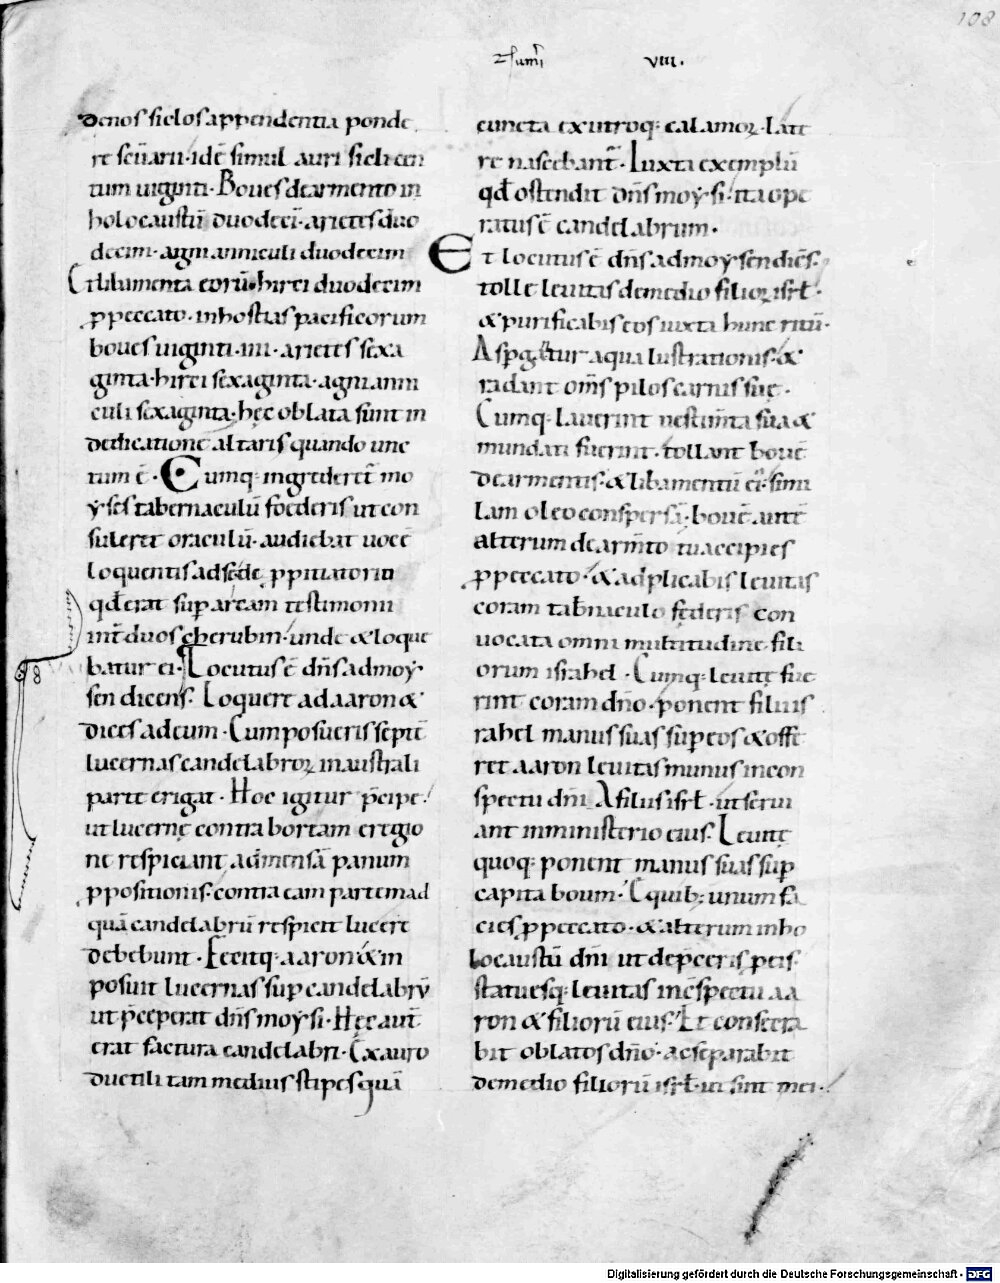 108
Numeri VIII.
denos siclos appendentia ponde
re sc̄uarii · idē simul auri sicli cen
tum uiginti · Boues de armento in
holocaustū duodeci · arietes duo
decim · agni anniculi duodecim
Et libamenta eorū · hirci duodecim
ꝓ peccato · in hostias pacificorum
boues uiginti · iiii · arietes sexa
ginta · hirci sexaginta · agni anni
culi sexaginta · hęc oblata sunt in
dedicatione altaris quando unc
tum ē · Cumq; ingrederet̄ mo
yses tabernaculū foederis ut con
suleret oraculū · audiebat uocē
loquentis ad se de ꝓpitiatorio
qđ erat suꝑ arcam testimonii
int̄ duos cherubin · unde & loque
batur ei · Locutus ē dn̄s ad moy
sen dicens · Loquere ad aaron &
dices ad eum · Cum posueris septē
lucernas candelabroꝝ in australi
parte erigat · Hoc igitur p̄cipe ·
ut lucernę contra boream e regio
ne respiciant ad mensā panum
ꝓpositionis · contra eam partem ad
quā candelabrū respicit lucere
debebunt · Fecitq; aaron & in
posuit lucernas suꝑ candelabrū
ut p̄ceperat dn̄s moysi · Hęc aut̄
erat factura candelabri · Ex auro
ductili tam medius stipes quā
cuncta ex utroq; calamoꝝ late
re nascebant̄ · Iuxta exemplū
qđ ostendit dn̄s moysi · ita ope
ratus ē candelabrum ·
Et locutus ē dn̄s ad moysen diēs ·
tolle leuitas de medio filioꝝ isrł ·
& purificabis eos iuxta hunc ritū ·
Aspergātur aqua lustrationis · &
radant om̄s pilos carnis suę ·
Cumq; lauerint uestim̄ta sua &
mundati fuerint · tollant bouē
de armentis · & libamentū ei · simi
lam oleo conspersā · bouē autē
alterum de arm̄to tu accipies
ꝓ peccato · & adplicabis leuitas
coram tab̄naculo fęderis con
uocata omni multitudine fili
orum israhel · Cumq; leuitę fue
rint coram dn̄o · ponent filii is
rahel manus suas suꝑ eos & offe
ret aaron leuitas munus in con
spectu dn̄i A filiis isrł · ut serui
ant in ministerio eius · Leuitę
quoq; ponent manus suas suꝑ
capita boum · E quib; unum fa
cies ꝓ peccato · & alterum in ho
locaustū dn̄i ut dep̄ceris ꝑ eis ·
statuesq; leuitas in c̄spectu aa
ron & filiorū eius · Et consecra
bit oblatos dn̄o · ac separabit
de medio filiorū isrł · ut sint mei ·
8
Digitalisierung gefördert durch die Deutsche Forschungsgemeinschaft - DFG